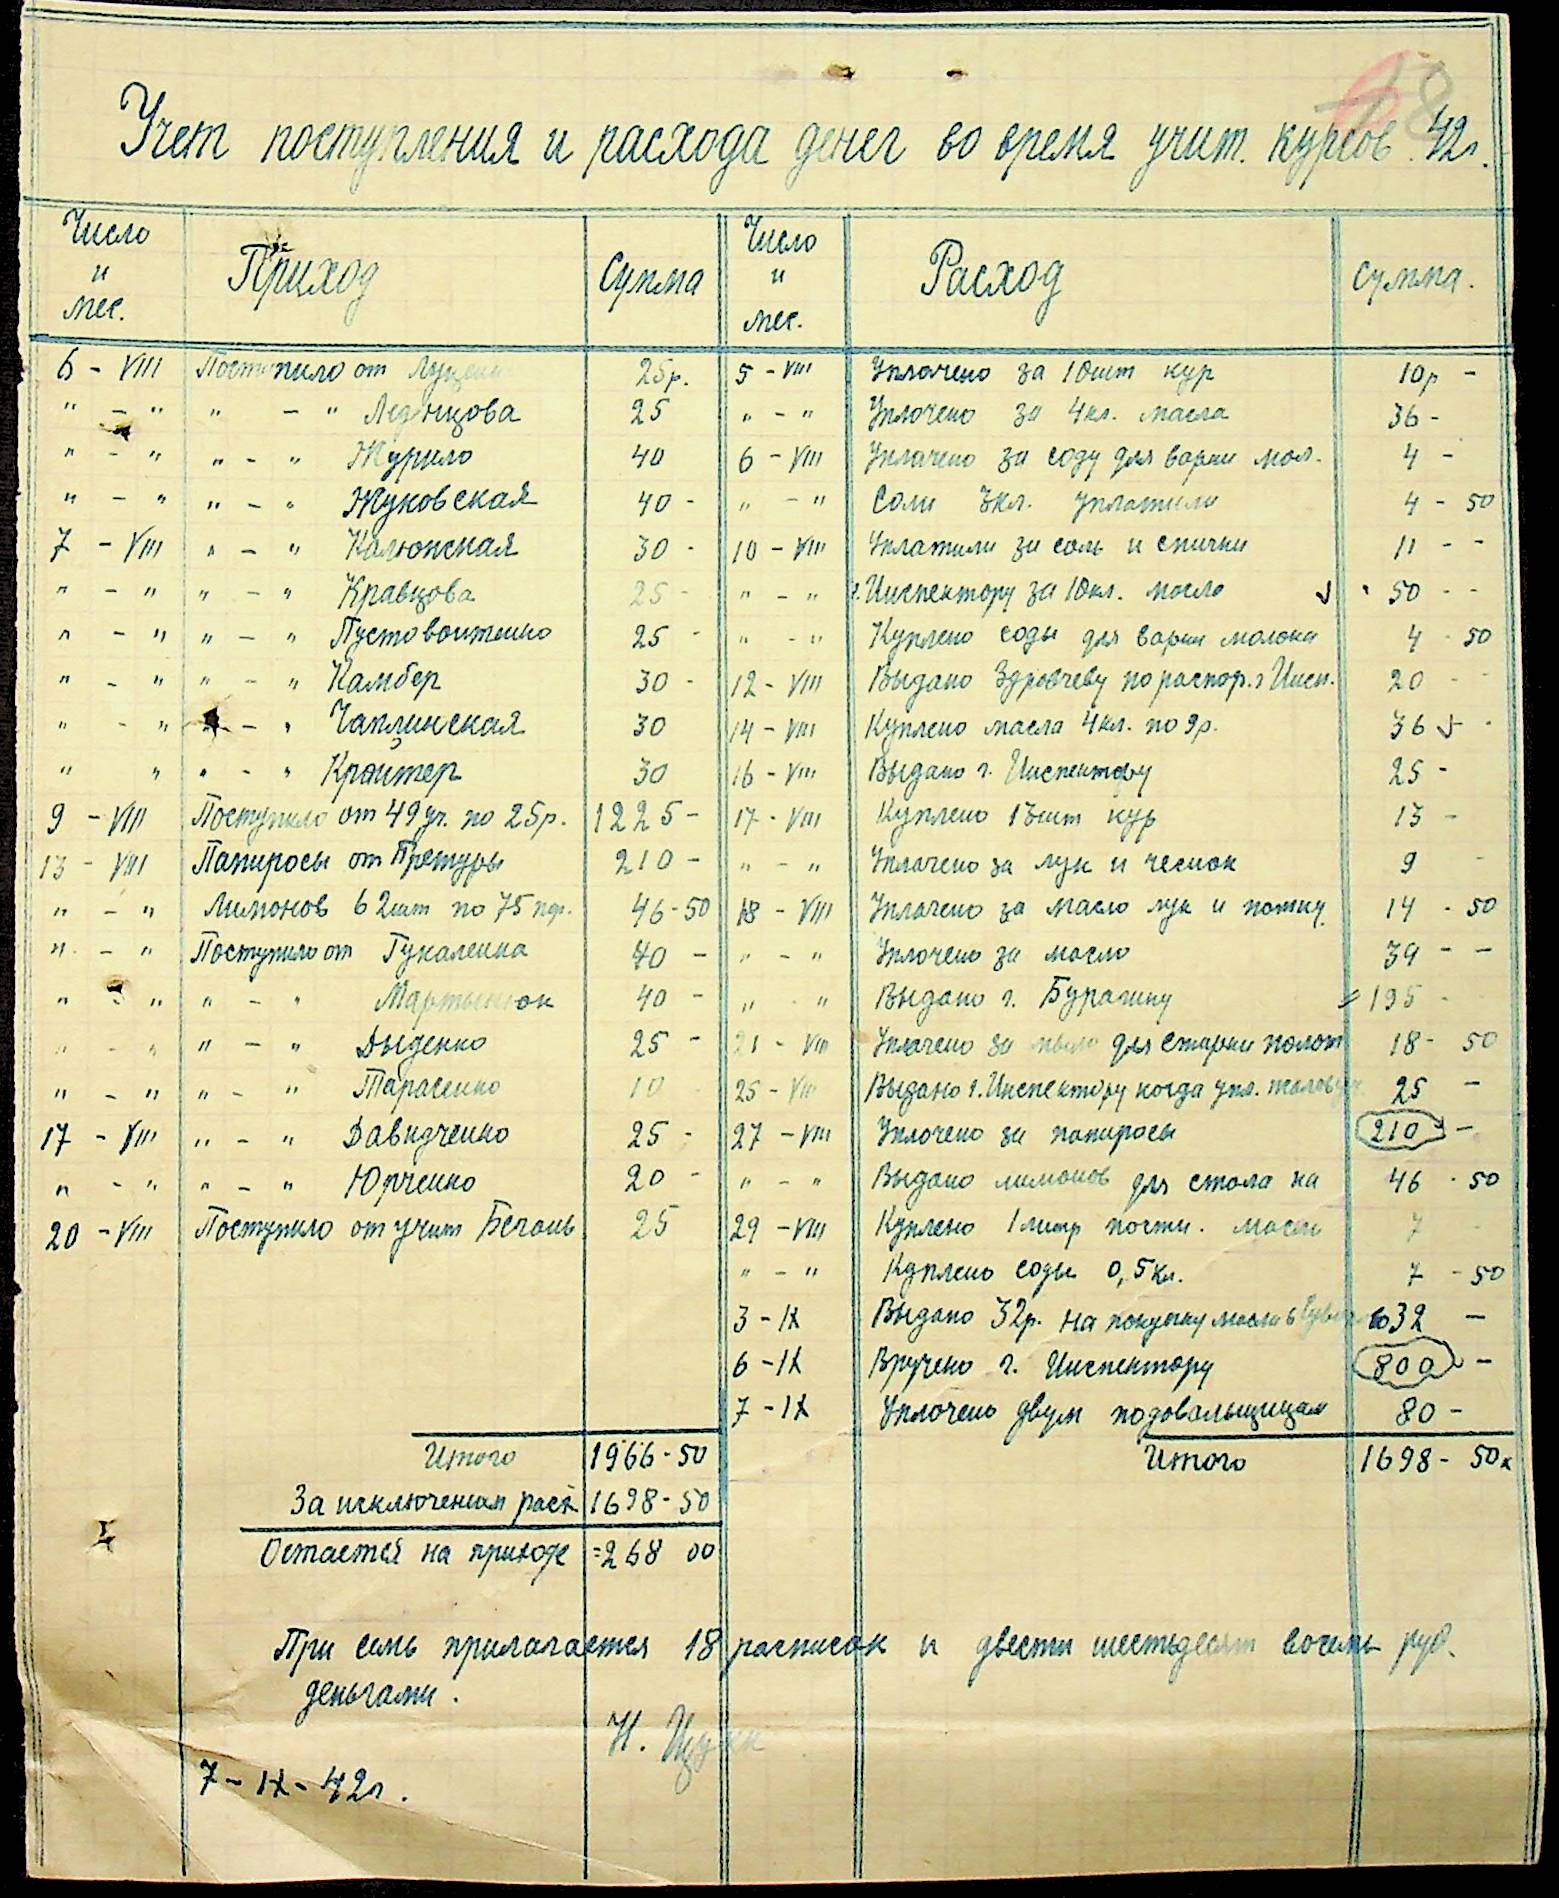 48
Учет поступления и расхода денег во время учит. курсов 42г.
Число и мес. Приход Сумма Число и мес. Расход Сумма.
6 - VIII Поступило от 25р. 5 - VIII Уплочено за 10шт кур 10р -
" - " " - " Леднцова 25 " - " Уплочено за 4кл. масла 36 -
" - " " - " Журило 40 6 - VIII Уплачено за соду для варки мол. 4 -
" - " " - " Жуковская 40 - " - " Соли 3кл. уплатили 4 - 50
7 - VIII " - " Калюжская 30 - 10 - VIII Уплатили за соль и спички 11 - -
" - " " - " Кравцова 25 - " - " г. Инспектору за 10кл. масло 50 - -
" - " " - " Пустовоитенко 25 - " - " Куплено соды для варки молока 4 - 50
" - " " - " Камбер 30 - 12 - VIII Выдано Здровчеву по распор. г Инсп. 20 - -
" - " " - " Чаплинская 30 14 - VIII Куплено масла 4кл. по 9р. 36 -
" " " - " Крайтер 30 16 - VIII Выдано г. Инспектору 25 -
9 - VIII Поступило от 49 уч. по 25р. 1225 - 17 - VIII Куплено 13шт кур 13 -
13 - VIII Папиросы от Претуры 210 - " - " Уплачено за лук и чеснок 9 -
" - " Лимонов 62шт по 75 пф. 46-50 18 - VIII Уплачено за масло лук и 14 - 50
" - " Поступило от Гукаленка 40 - " - " Уплочено за масло 39 - -
" - " " - " Мартынюк 40 - " - " Выдано г. Бурагину 195 -
" - " " - " Дыденко 25 - 21 - VIII Уплачено за мыло для стирки полот 18 - 50
" - " " - " Тарасенко 10 - 25 - VIII Выдано г. Инспектору когда упл. 25 -
17 - VIII " - " Давидченко 25 - 27 - VIII Уплочено за папиросы 210 -
" - " " - " Юрченко 20 - " - " Выдано лимонов для стола на 46 - 50
20 - VIII Поступило от учит Бегань 25 29 - VIII Куплено 1 литр постн. масла 7 -
" - " Куплено соды 0,5 кл. 7 - 50
3 - IX Выдано 32р. на покупку масла в 32 -
6 - IX Вручено г. Инспектору 800 -
7 - IX Уплочено двум подовальщицам 80 -
Итого 1966 - 50 Итого 1698 - 50к
За исключением расх 1698 - 50
Остается на приходе =268 00
При семь прилагается 18 расписок и двести шестьдесят восемь руб.
деньгами.
Н.
7 - IX - 42г.